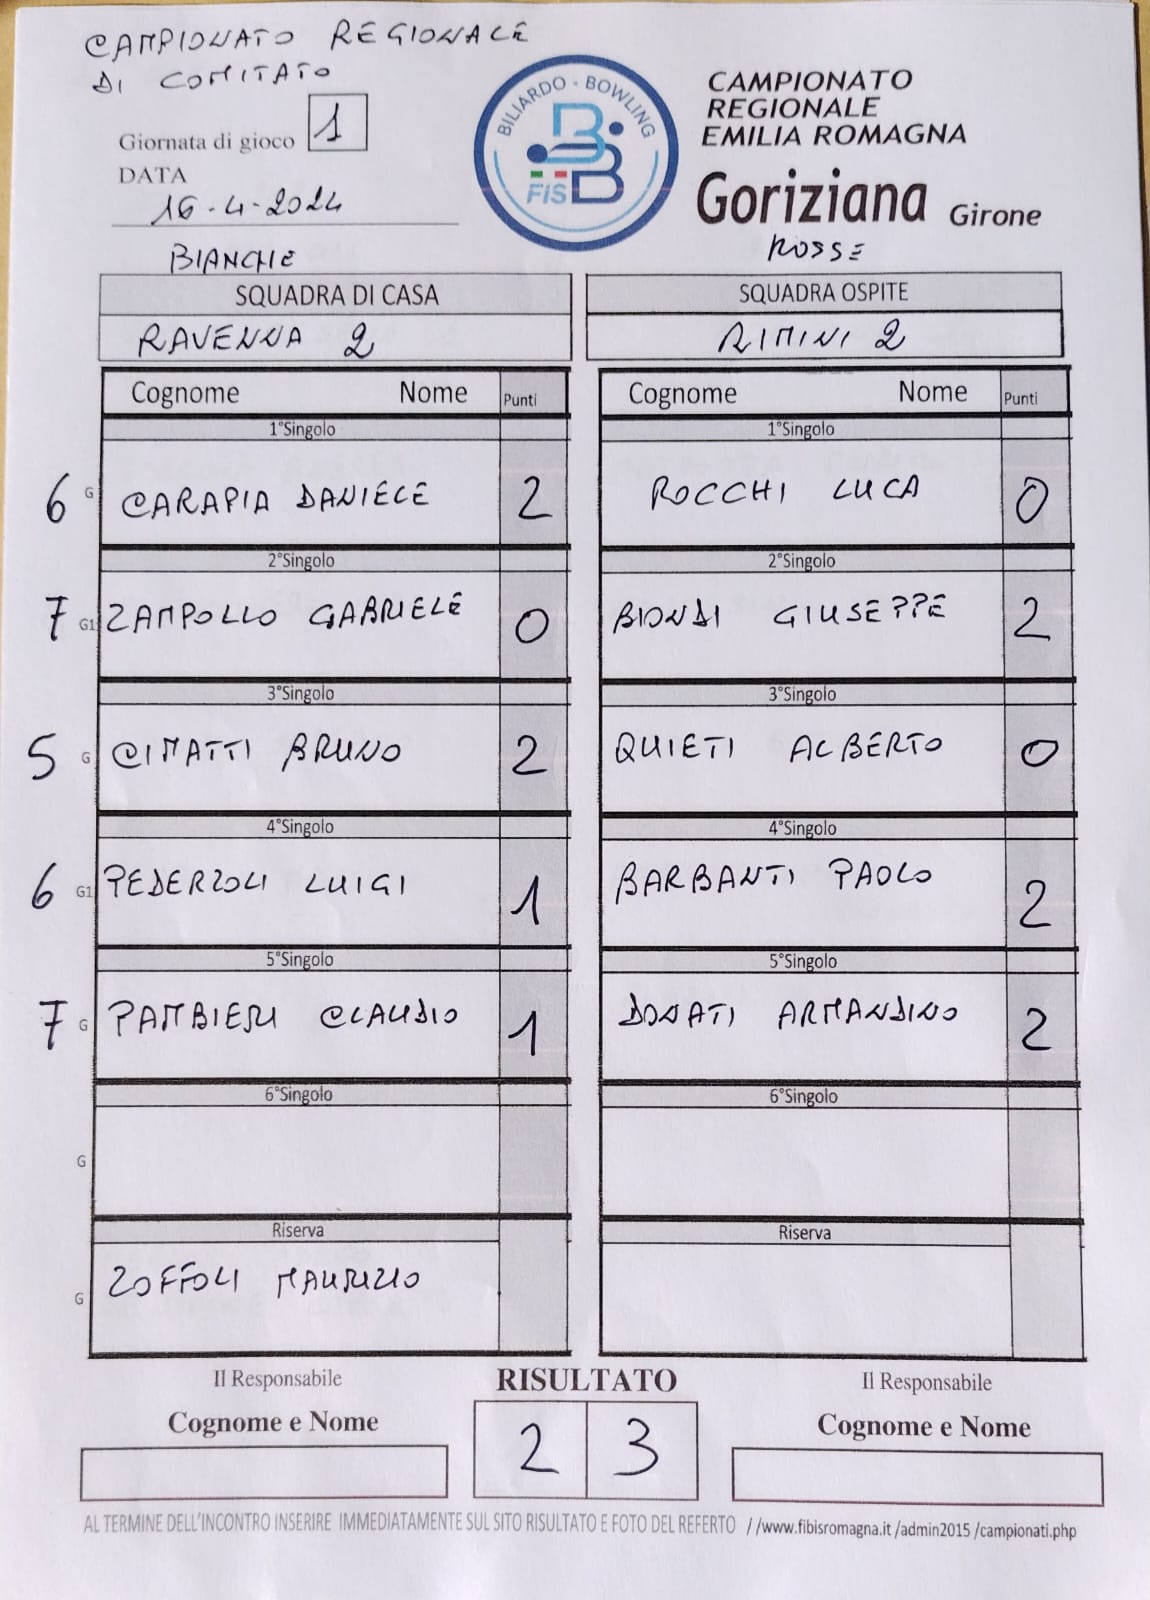 CAMPIONATO REGIONALE
DI COMITATO
Giornata di gioco 1
DATA
16-4-2024
BILIARDO - BOWLING
FISBB
CAMPIONATO
REGIONALE
EMILIA ROMAGNA
Goriziana Girone
BIANCHE
ROSSE
SQUADRA DI CASA
SQUADRA OSPITE
RAVENNA 2
RIMINI 2
Cognome Nome Punti
Cognome Nome Punti
1°Singolo
1°Singolo
6 G CARAPIA DANIELE 2
ROCCHI LUCA 0
2°Singolo
2°Singolo
7 G1 ZAMPOLLO GABRIELE 0
BIONDI GIUSEPPE 2
3°Singolo
3°Singolo
5 G CIMATTI BRUNO 2
QUIETI ALBERTO 0
4°Singolo
4°Singolo
6 G1 PEDERZOLI LUIGI 1
BARBANTI PAOLO 2
5°Singolo
5°Singolo
7 G PAMBIERI CLAUDIO 1
DONATI ARMANDINO 2
6°Singolo
6°Singolo
G
Riserva
Riserva
G ZOFFOLI MAURIZIO
Il Responsabile
RISULTATO
Il Responsabile
Cognome e Nome
Cognome e Nome
2 3
AL TERMINE DELL'INCONTRO INSERIRE IMMEDIATAMENTE SUL SITO RISULTATO E FOTO DEL REFERTO //www.fibisromagna.it /admin2015 /campionati.php